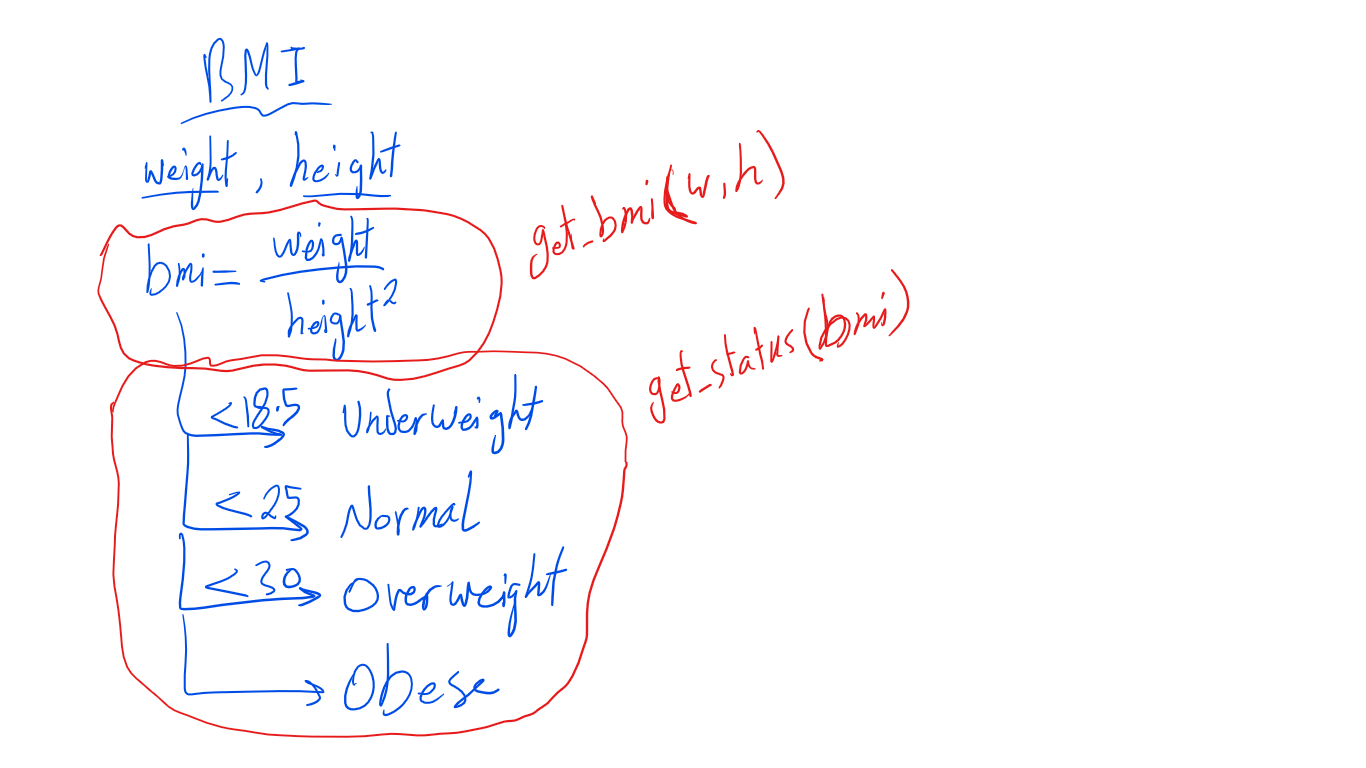 BMI
weight, height
get_bmi(w,h)
bmi = weight
height²
get_status(bmi)
<18.5 Underweight
<25 Normal
<30 Overweight
Obese